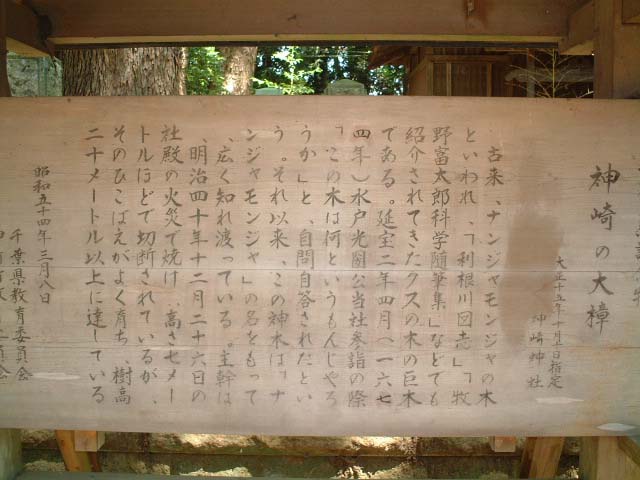 神崎の大樟
大正十五年十月  日指定
神崎神社
古来、ナンジャモンジャの木
といわれ、「利根川図志」「牧
野富太郎科学随筆集」などでも
紹介されてきたクスの木の巨木
である。延宝二年四月(一六七
四年)水戸光圀公当社参詣の際
「この木は何というもんじやろ
うか」と、自問自答されたとい
う。それ以来、この神木は「ナ
ンジャモンジャ」の名をもって
広く知れ渡っている。主幹は
、明治四十年十二月二十六日の
社殿の火災で焼け、高さ七メー
トルほどで切断されているが、
そのひこばえがよく育ち、樹高
二十メートル以上に達している
昭和五十四年三月八日
千葉県教育委員会